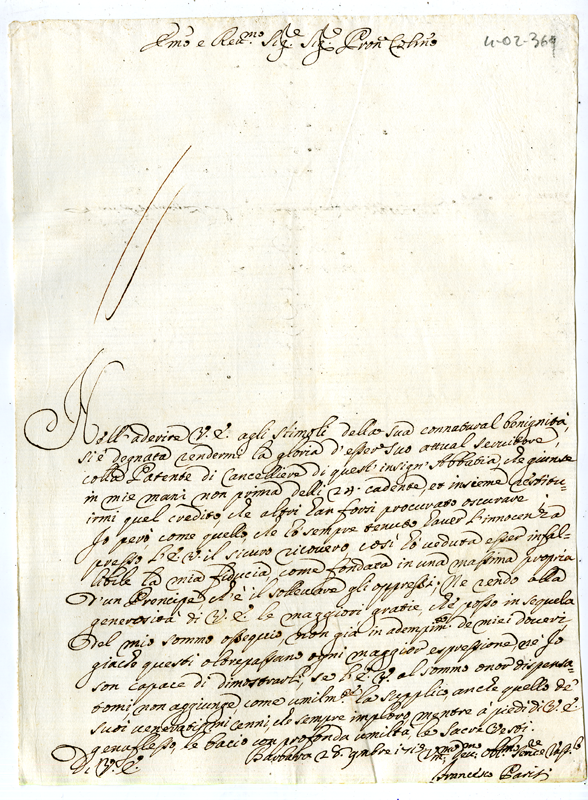 Em.o e Re.mo Sig.e Sig.e Pron.e Col.mo
4-02-369
Nell' aderire V. E. agli stimoli della sua connatural benignità
si è degnata rendermi la gloria d'esser suo attual servitore,
colla Patente di Cancelliere di quest' insign' Abbatia, che giunse
in mie mani non prima delli cadente, et insieme restitu-
irmi quel credito, che altri han forsi procurato oscurare
Io però come quello, che hò sempre tenuto haver l'innocenza
presso l'E. V. il sicuro ricovero, così hò veduta esser infal-
libile la mia fiducia, come fondata in una massima propria
d'un Prencipe, ch'è il sollevare gli oppressi; Ne rendo alla
generosità di V. E. le maggiori gratie, che posso in sequela
del mio sommo ossequio, non già in adempim.to de miei doveri
giache questi oltrepassano ogni maggior espressione, nè Io
son capace di dimostrarli, se l'E. V. al sommo onor dispensa-
tomi non aggiunge come umilm.te la supplico anche quello de
suoi veneratissimi cenni, che sempre imploro mentre a piedi di V. E.
genuflesso le bacio con profonda umiltà, le Sacre Vesti.
D. V. E.
Barbara 28
Francesco